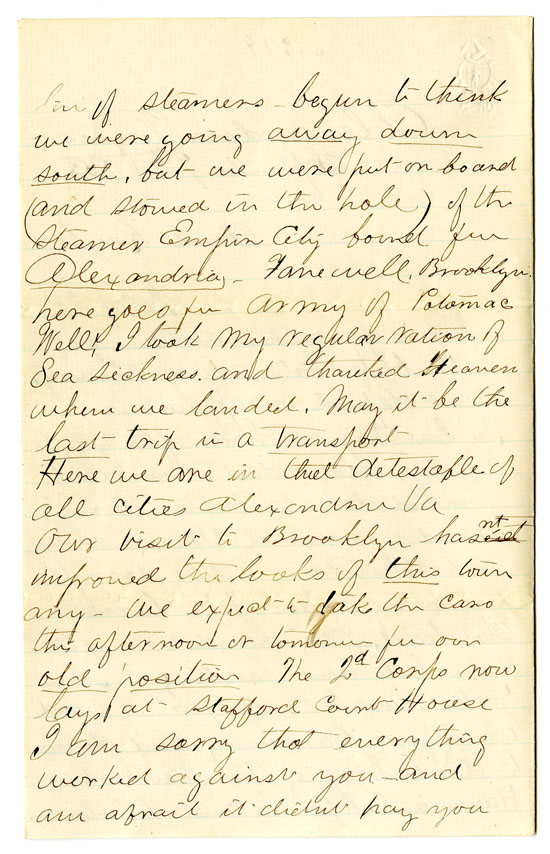 line of steamers - begun to think
we were going away down
south, but we were put on board
(and stowed in the hole) of the
Steamer Empire City bound for
Alexandria - Farewell, Brooklyn.
here goes for Army of Potomac
Well, I took my regular ration of
Sea sickness. and thanked Heaven
when we landed. May it be the
last trip in a transport
Here we are in that detestable of
all cities Alexandria Va
Our visit to Brooklyn hasnt
improved the looks of this town
any - We expect to take the cars
this afternoon or tomorrow for our
old position The 2d Corps now
lays at Stafford Court House
I am sorry that everything
worked against you - and
am afrait it didnt pay you